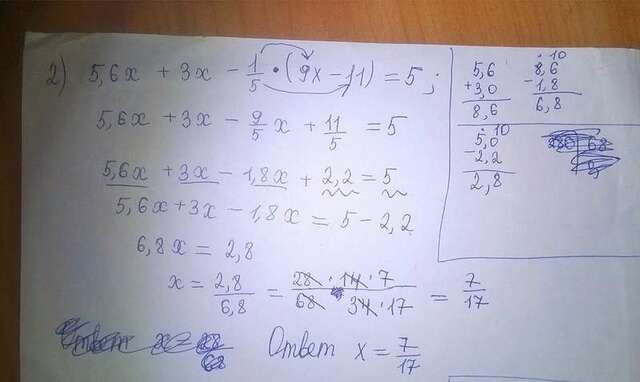 2) 5,6x + 3x - 1/5 • (9x - 11) = 5;
5,6x + 3x - 9/5 x + 11/5 = 5
5,6x + 3x - 1,8x + 2,2 = 5
5,6x + 3x - 1,8x = 5 - 2,2
6,8x = 2,8
x = 2,8/6,8 = 28 · 14 · 7 / 68 34 · 17 = 7/17
Ответ x = 28/68
Ответ x = 7/17
5,6
+3,0
8,6
• 10
8,6
-1,8
6,8
• 10
5,0
-2,2
2,8
280 68